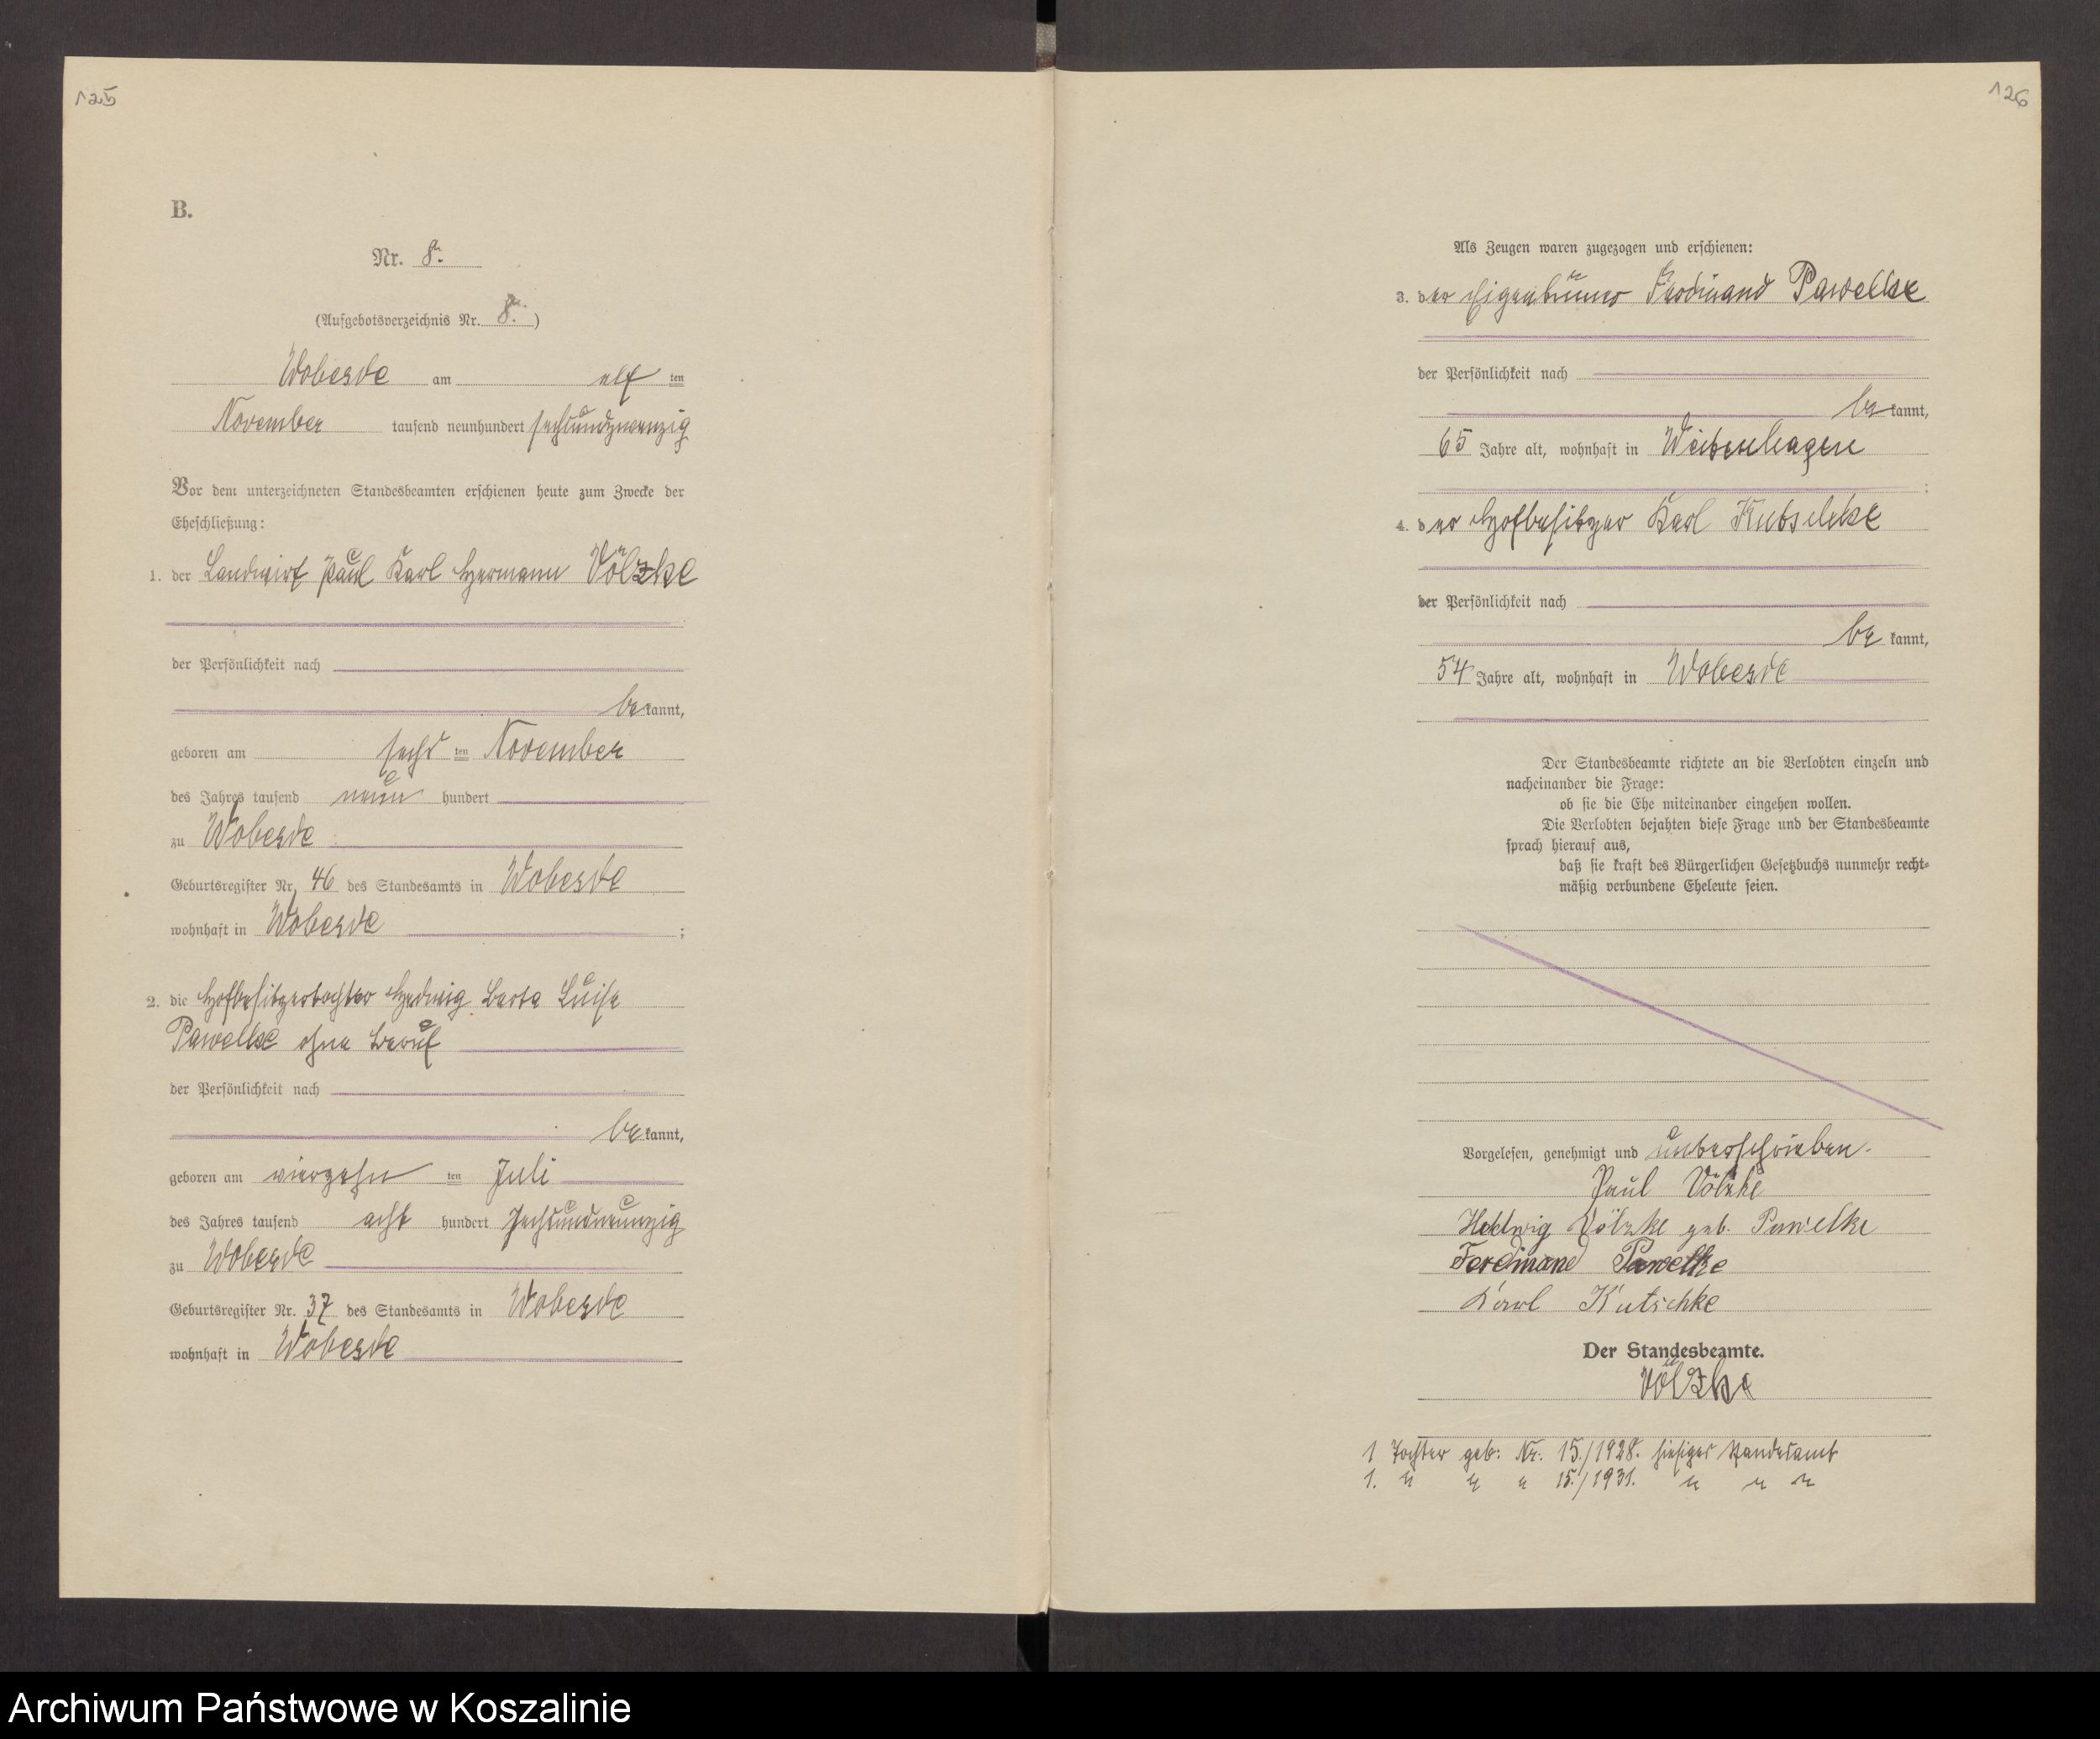 125
B.
Nr. 8.
(Aufgebotsverzeichnis Nr. 8.)
Wobesde am elf ten
November tausend neunhundert sechsundzwanzig
Vor dem unterzeichneten Standesbeamten erschienen heute zum Zwecke der
Eheschließung:
1. der Landwirt Paul Karl Hermann Völzke
der Persönlichkeit nach
be kannt,
geboren am sechs ten November
des Jahres tausend neun hundert
zu Wobesde
Geburtsregister Nr. 46 des Standesamts in Wobesde
wohnhaft in Wobesde ;
2. die Hofbesitzertochter Hedwig Berta Luise
Pawelke ohne Beruf
der Persönlichkeit nach
be kannt,
geboren am vierzehn ten Juli
des Jahres tausend acht hundert sechsundneunzig
zu Wobesde
Geburtsregister Nr. 37 des Standesamts in Wobesde
wohnhaft in Wobesde
126
Als Zeugen waren zugezogen und erschienen:
3. der Eigentümer Ferdinand Pawelke
der Persönlichkeit nach
be kannt,
65 Jahre alt, wohnhaft in Weitenhagen
;
4. der Hofbesitzer Karl Kutschke
der Persönlichkeit nach
be kannt,
54 Jahre alt, wohnhaft in Wobesde
Der Standesbeamte richtete an die Verlobten einzeln und
nacheinander die Frage:
ob sie die Ehe miteinander eingehen wollen.
Die Verlobten bejahten diese Frage und der Standesbeamte
sprach hierauf aus,
daß sie kraft des Bürgerlichen Gesetzbuchs nunmehr recht-
mäßig verbundene Eheleute seien.
Vorgelesen, genehmigt und unterschrieben.
Paul Völzke
Hedwig Völzke geb. Pawelke
Ferdinand Pawelke
Karl Kutschke
Der Standesbeamte.
Völzke
1 Tochter geb: Nr. 15./1928. hiesiges Standesamt
1. " " " 15./1931. " " "
Archiwum Państwowe w Koszalinie